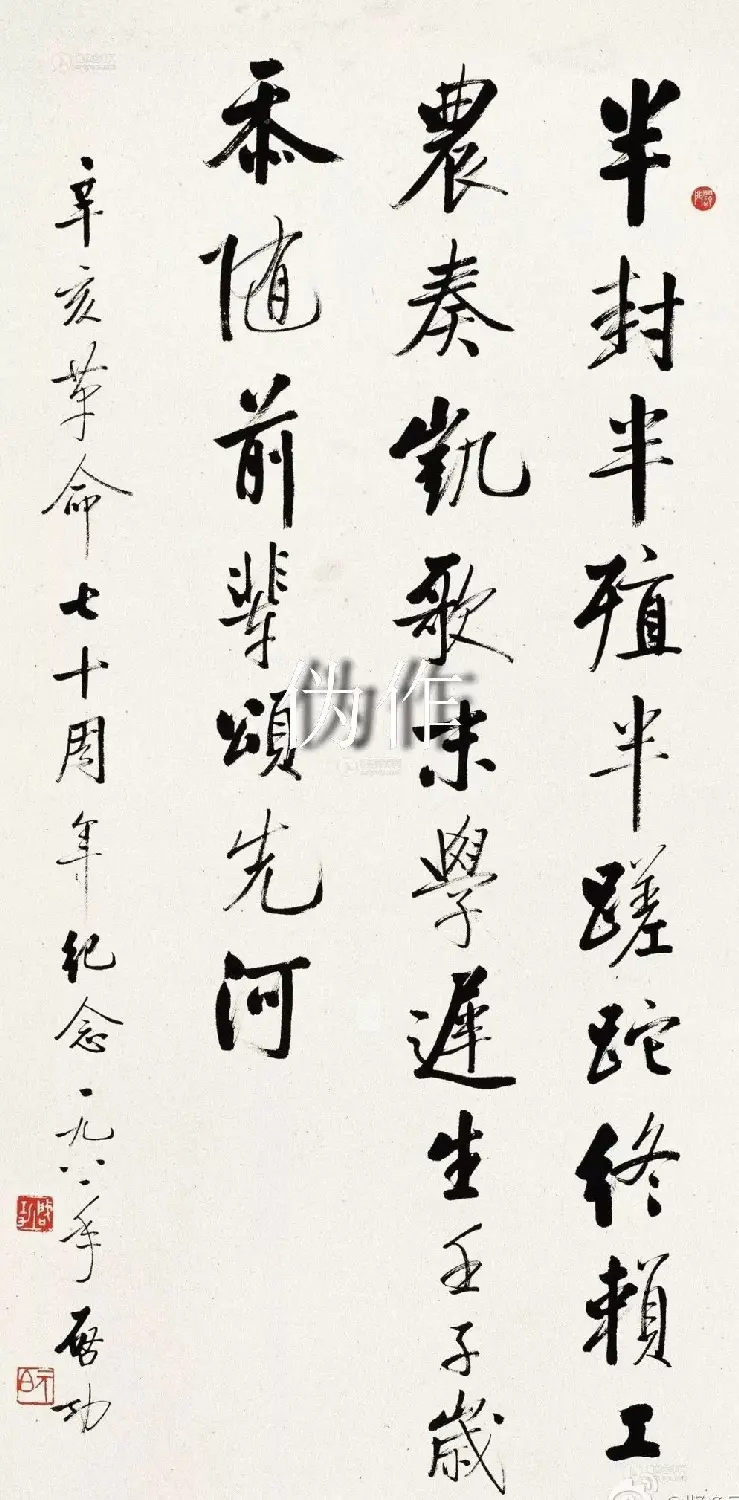 半封半殖半蹉跎终賴工
農奏凱歌末學遲生壬子歲
忝随前輩頌先河
辛亥革命七十周年纪念一九八一年启功
伪作